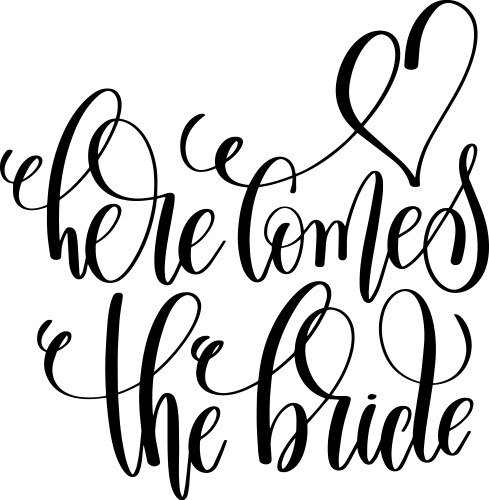 here comes
the bride